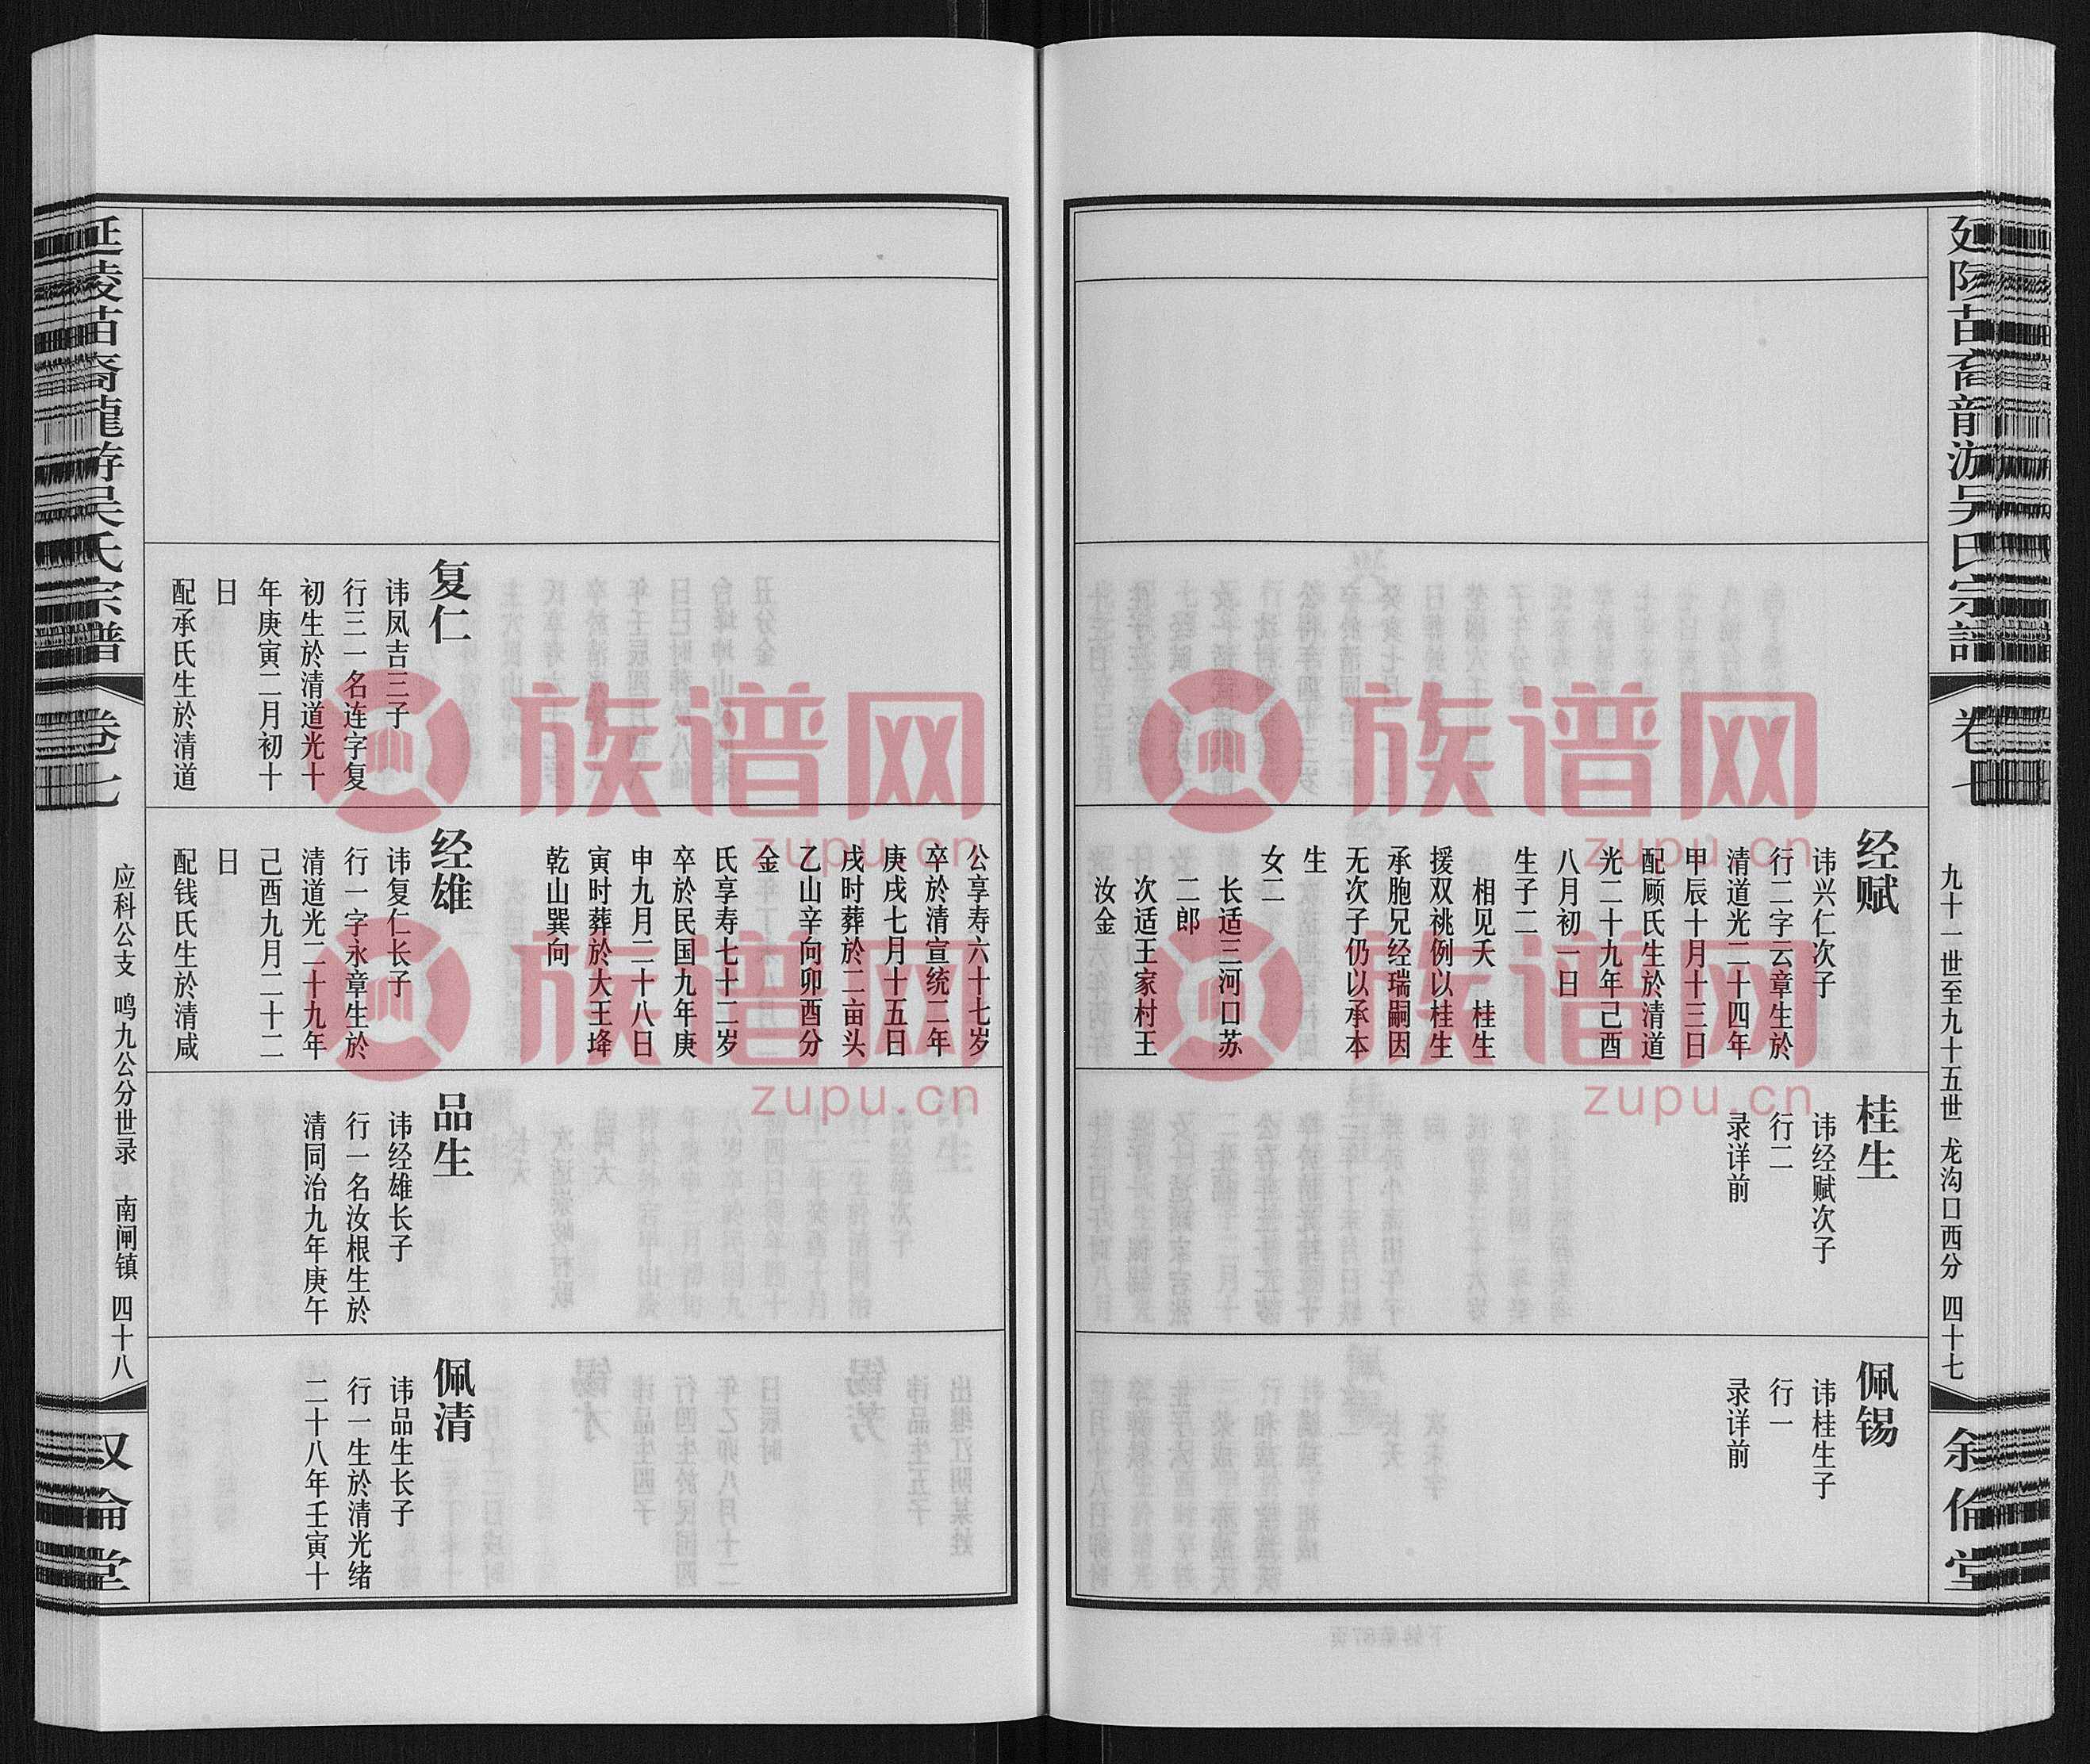 延陵苗裔龍游吴氏宗譜
卷七
九十一世至九十五世 龙沟口西分 四十七
叙倫堂
经赋
讳兴仁次子
行二字云章生於
清道光二十四年
甲辰十月十三日
配顾氏生於清道
光二十九年己酉
八月初一日
生子二
相见夭 桂生
援双祧例以桂生
承胞兄经瑞嗣因
无次子仍以承本
生
女二
长适三河口苏
二郎
次适王家村王
汝金
桂生
讳经赋次子
行二
录详前
佩锡
讳桂生子
行一
录详前
公享寿六十七岁
卒於清宣统二年
庚戌七月十五日
戌时葬於二亩头
乙山辛向卯酉分
金
氏享寿七十二岁
卒於民国九年庚
申九月二十八日
寅时葬於大王埄
乾山巽向
复仁
讳凤吉三子
行三一名连字复
初生於清道光十
年庚寅二月初十
日
配承氏生於清道
经雄
讳复仁长子
行一字永章生於
清道光二十九年
己酉九月二十二
日
配钱氏生於清咸
品生
讳经雄长子
行一名汝根生於
清同治九年庚午
佩清
讳品生长子
行一生於清光绪
二十八年壬寅十
延陵苗裔龍游吴氏宗譜
卷七
应科公支 鸣九公分世录 南闸镇 四十八
叙倫堂
族谱网
zupu.cn
族谱网
zupu.cn
族谱网
zupu.cn
族谱网
zupu.cn